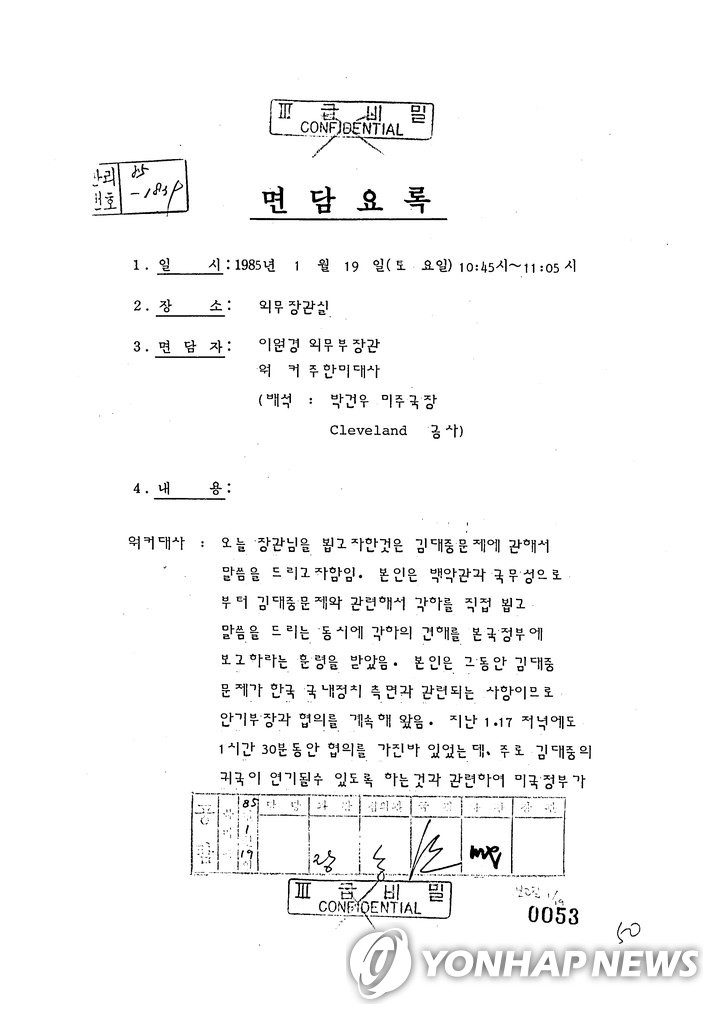 III 급 비 밀
CONFIDENTIAL
관리 85
번호 -183
면 담 요 록
1. 일 시: 1985년 1 월 19 일(토 요일) 10:45시~11:05 시
2. 장 소: 외무장관실
3. 면 담 자: 이원경 외무부장관
워 커 주한미대사
(배석 : 박건우 미주국장
Cleveland 공사)
4. 내 용:
워커대사 : 오늘 장관님을 뵙고자한것은 김대중문제에 관해서
말씀을 드리고자함임. 본인은 백악관과 국무성으로
부터 김대중문제와 관련해서 각하를 직접 뵙고
말씀을 드리는 동시에 각하의 견해를 본국정부에
보고하라는 훈령을 받았음. 본인은 그동안 김대중
문제가 한국 국내정치 측면과 관련되는 사항이므로
안기부장과 협의를 계속해 왔음. 지난 1.17 저녁에도
1시간 30분동안 협의를 가진바 있었는데, 주로 김대중의
귀국이 연기될수 있도록 하는것과 관련하여 미국정부가
공람 85 1 19 담당 과장 심의관 국장
III 급 비 밀
CONFIDENTIAL
0053
50
YONHAP NEWS